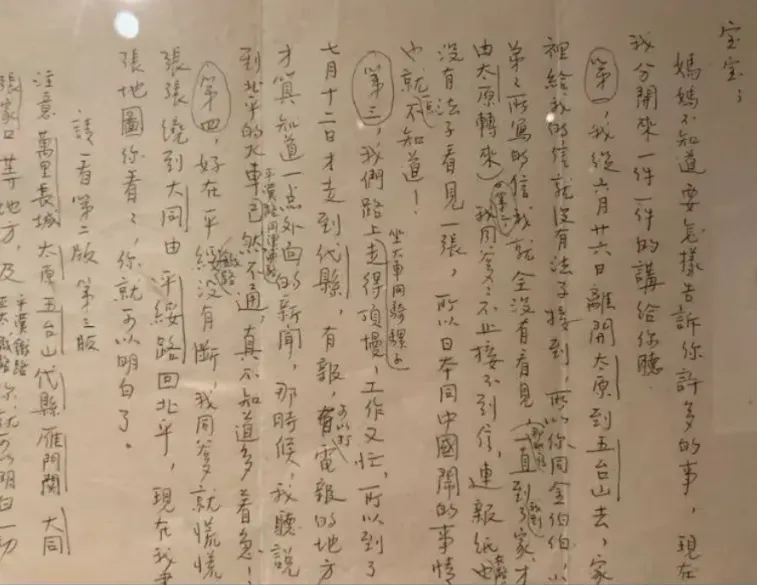 宝宝：
媽媽不知道要怎樣告訴你許多的事，現在
我分開來一件一件的講給你聽。
第一，我從六月廿六日離開太原到五台山去，家
裡給我的信就沒有法子接到，所以你同金伯伯，小
弟弟所寫的信我就全沒有看見（一直到了家，才
由太原轉來）
第二，我同爹爹不止接不到信，連報紙也
沒有法子看見一張，所以日本同中國鬧的事情
也就一点不知道！
第三，我們路上坐大車同騎騾子走得頂慢，工作又忙，所以到了
七月十二日才走到代縣，有報，可以打電報的地方
才算知道一点外面的新聞，那時候，我聽說
到北平的火車，平漢路同津浦路已然不通，真不知道多着急！
第四，好在平綏鐵路沒有斷，我同爹爹就慌慌
張張繞到大同由平綏路回北平，現在我
張地圖你看看，你就可以明白了。
請看第二版 第三版
注意萬里長城 太原 五台山 代縣 雁門關 大同
張家口等地方，及平漢鐵路 你就可以明白一切